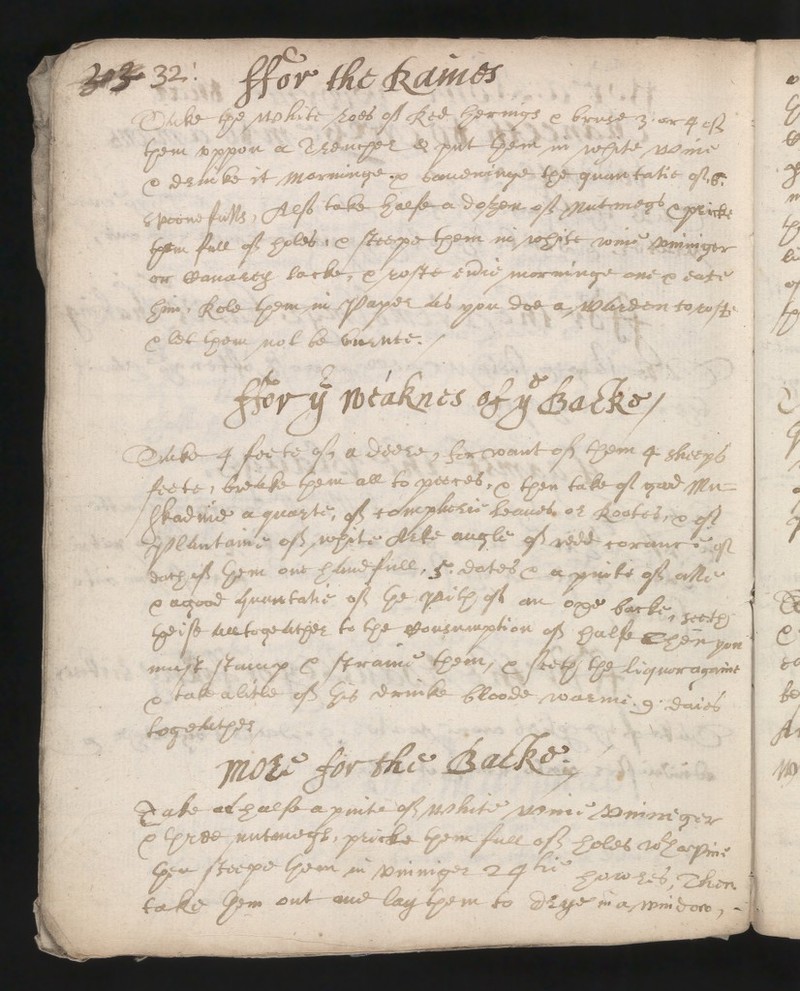 32: ffor the Raines
Take the white roes of Red herings & bruse 3 or 4 of
them uppon a Trencher & put them in white wine
& drinke it morninge & eaveninge the quantatie of 6.
spoonefulls, Also take halfe a dozen of Nutmegs & pricke
them full of holes, & steepe them in white wine viniger
or sacke, & roste everie morninge one & eate
him, Role them in Paper as you doe a warden to roste
& let them not be burnte.
ffor ye weaknes of ye Backe
Take 4 feete of a deere, for want of them 4 sheeps
feete, breake them all to peeces, & then take of good Mu-
skadine a quarte, of leaves or Rootes, & of
Plantaine of white of redd of
of them one handfull, 5 dates & a pinte of
& a good quantatie of the Pith of an oxe backe, seeth
altogeather to the Consumption of halfe then you
must stamp & straine them, & seeth the liquor againe
& take a litle of his drinke bloode warme. 9 daies
togeather
more for the Backe
Take halfe a pinte of white wine vinineger
& three nutmegs, pricke them full of holes
then steepe them in viniger 24tie howres, Then
take them out and lay them to drye in a window,